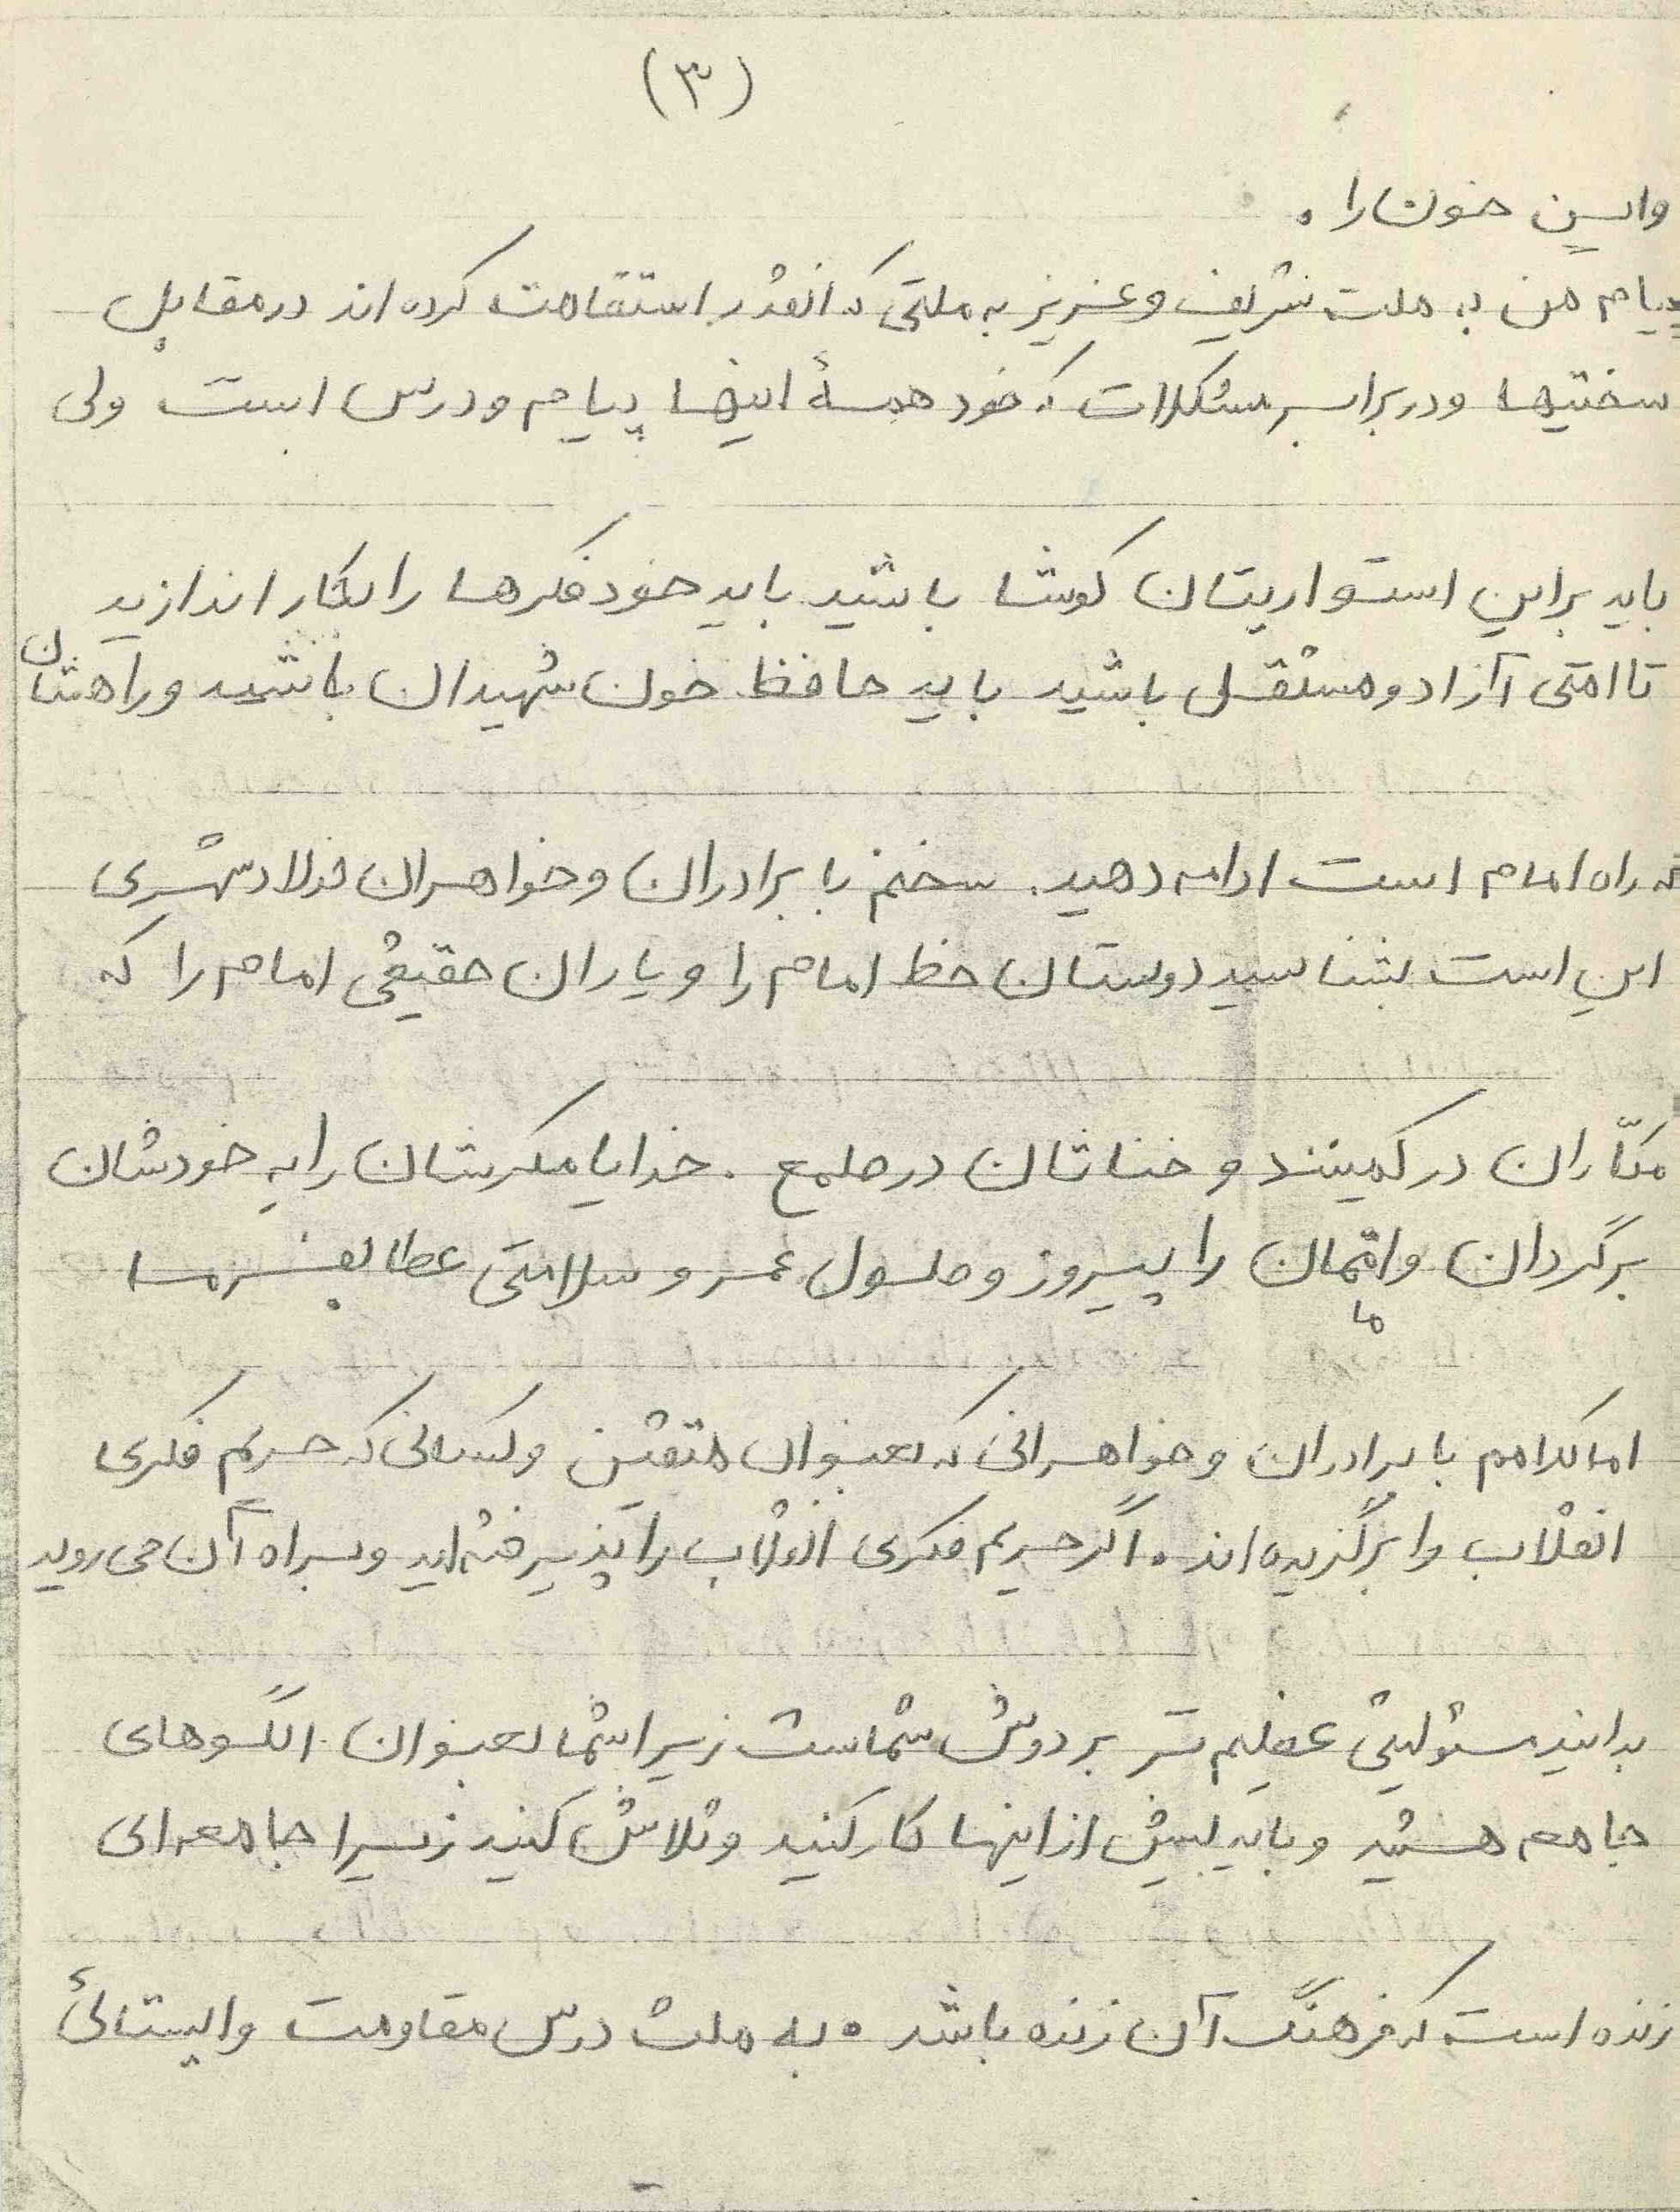 (۳)
واسین خون را.
پیام من به ملت شریف و عزیز به ملتی که انقدر استقامت کرده اند در مقابل
سختیها و در برابر مشکلات که خود همهٔ اینها پیام و درس است ولی
باید بر این استواریتان کوشا باشید باید خود فکرها را بکار اندازید
تا امتی آزاد و مستقل باشید باید حافظ خون شهیدان باشید و راهشان
که راه امام است ادامه دهید. سخنم با برادران و خواهران فولادشهری
این است بشناسید دوستان خط امام را و یاران حقیقی امام را که
مکّاران در کمینند و خناثان در طمع. خدایا مکرشان را به خودشان
برگردان و اماممان را پیروز و طول عمر و سلامتی عطا بفرما
اما کلامم با برادران و خواهرانی که بعنوان متقین و کسانی که حریم فکری
انقلاب را برگزیده اند. اگر حریم فکری انقلاب را پذیرفته اید و براه آن می روید
بدانید مسئولیتی عظیم تر بر دوش شماست زیرا شما بعنوان الگوهای
جامعه هستید و باید بیش از اینها کار کنید و تلاش کنید زیرا جامعه ای
زنده است که فرهنگ آن زنده باشد. به ملت درس مقاومت و ایستائی